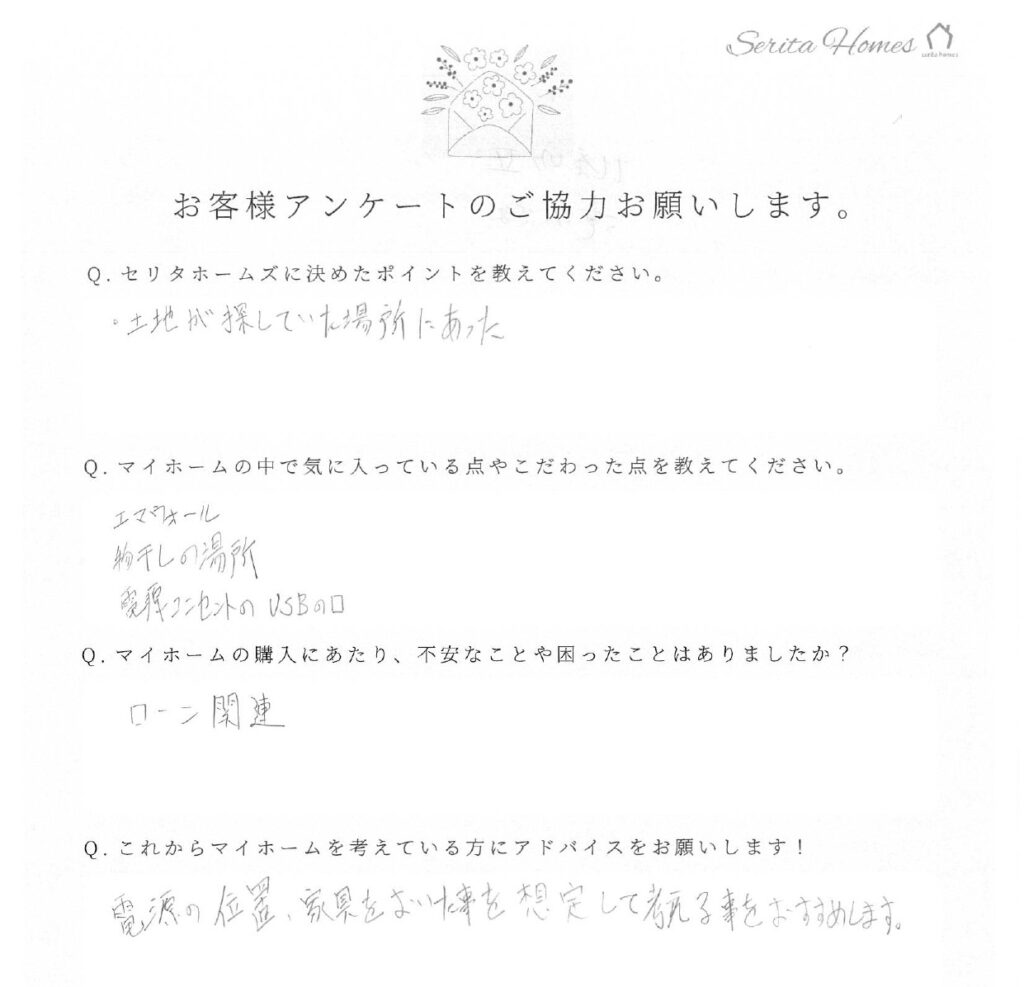 Serita Homes
serita homes
お客様アンケートのご協力お願いします。
Q. セリタホームズに決めたポイントを教えてください。
・土地が探していた場所にあった
Q. マイホームの中で気に入っている点やこだわった点を教えてください。
エマウォール
物干しの場所
電源コンセントのUSBの口
Q. マイホームの購入にあたり、不安なことや困ったことはありましたか？
ローン関連
Q. これからマイホームを考えている方にアドバイスをお願いします！
電源の位置、家具をおいた事を想定して考える事をおすすめします。